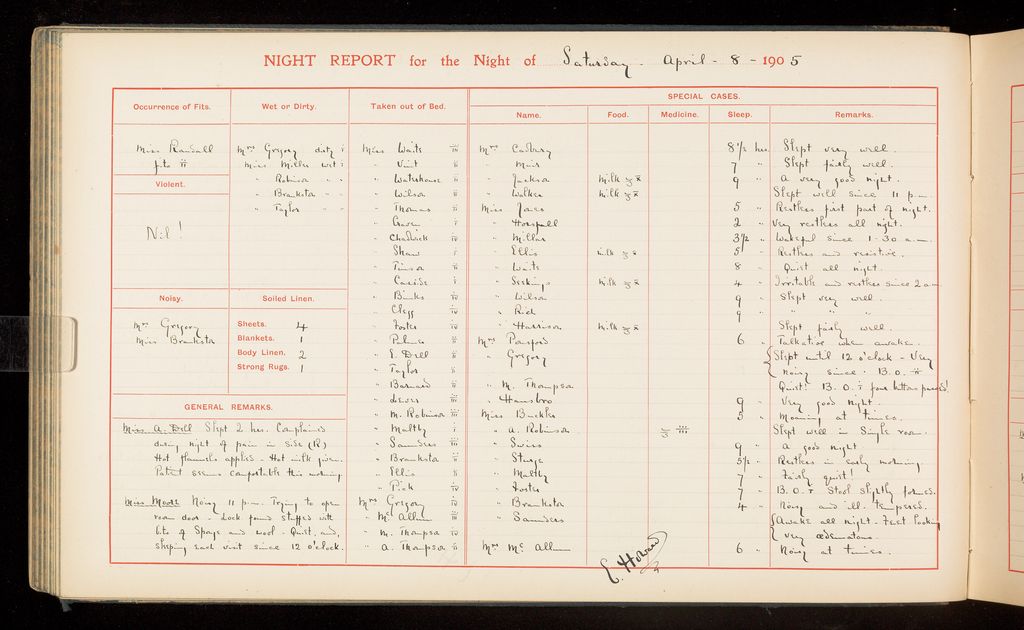 NIGHT REPORT for the Night of Saturday. April - 8 - 1905
Occurrence of Fits.
Miss Randall
fits ii
Violent.
Nil!
Noisy.
Mrs Gregory
Miss Branksta
Wet or Dirty.
Mrs Gregory dirty i
Miss Miller wet i
" Robinson " "
" Branksta " "
" Taylor " "
Soiled Linen.
Sheets. 4
Blankets. 1
Body Linen. 2
Strong Rugs. 1
GENERAL REMARKS.
Miss A. Dell Slept 2 hrs. Complained
during night of pain in side (R)
Hot flannels applied - Hot milk given.
Patient seems comfortable this morning
Miss Moore Noisy 11 p.m. Trying to open
room door - Lock found stuffed with
bits of and wool - Quiet, and,
sleeping each visit since 12 o'clock.
Taken out of Bed.
Miss Waits iii
" Vint ii
" Waterhouse ii
" Wilson ii
" Thomas ii
" i
" Chadwick iv
" Shaw i
" ii
" Casside i
" Binks iv
" Clegg iv
" Foster iv
" Palmer ii
" E. Dell ii
" Taylor ii
" Barnard ii
" Lever iv
" M. Robinson iii
" Maltby i
" Saunders iii
" Branksta ii
" Ellis ii
" Pick iv
Mrs Gregory i
" Mc Allum iii
" M. Thompson iv
" A. Thompson ii
SPECIAL CASES.
Name. Food. Medicine. Sleep. Remarks.
Mrs Cadbury 8 1/2 hrs. Slept very well.
" Muir 7 " Slept fairly well.
" Jackson Milk 9 " A very good night.
" Walker Milk Slept well since 11 p.m.
Miss Jones 5 " Restless first part of night.
" Horsfall 2 " Very restless all night.
" Millar 3 1/2 " Wakeful since 1-30 a.m.
" Ellis Milk 5 " Restless and resistive.
" Waits 8 " Quiet all night.
" Seekings Milk 4 " Irritable and restless since 2 a.m
" Wilson 9 " Slept very well.
" Rich 9 " " " "
" Harrison Milk Slept fairly well.
Mrs 6 " Talkative when awake.
" Gregory Slept until 12 o'clock - Very
noisy since. B.O. ii
" M. Thompson Quiet! B.O. i
" Hansbro 9 " Very good night.
Miss Buckle 5 " Moaning at times.
" A. Robinson Slept well in single room.
" Swiss 9 " A good night.
" Sturge 5 1/2 " Restless in early morning.
" Maltby 7 " Fairly quiet!
" Foster 7 " B.O. i Stool slightly formed.
" Branksta 4 " Noisy and ill-tempered.
" Saunders Awake all night - Feet looking
very oedematous.
Mrs Mc Allum 6 " Noisy at times.
E. Howard